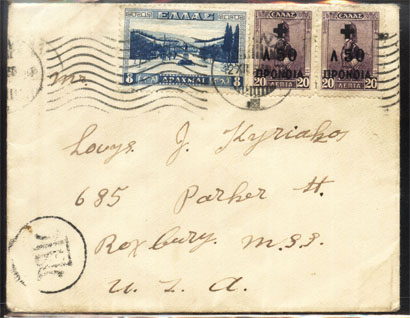 ΕΛΛΑΣ
8 ΔΡΑΧΜΑΙ 8
ΕΛΛΑΣ
Λ 50
ΠΡΟΝΟΙΑ
20 ΛΕΠΤΑ 20
ΕΛΛΑΣ
Λ 50
ΠΡΟΝΟΙΑ
20 ΛΕΠΤΑ 20
Mr.
Louys J. Kyriakos
685 Parker St.
Roxbury. Mss.
U. S. A.